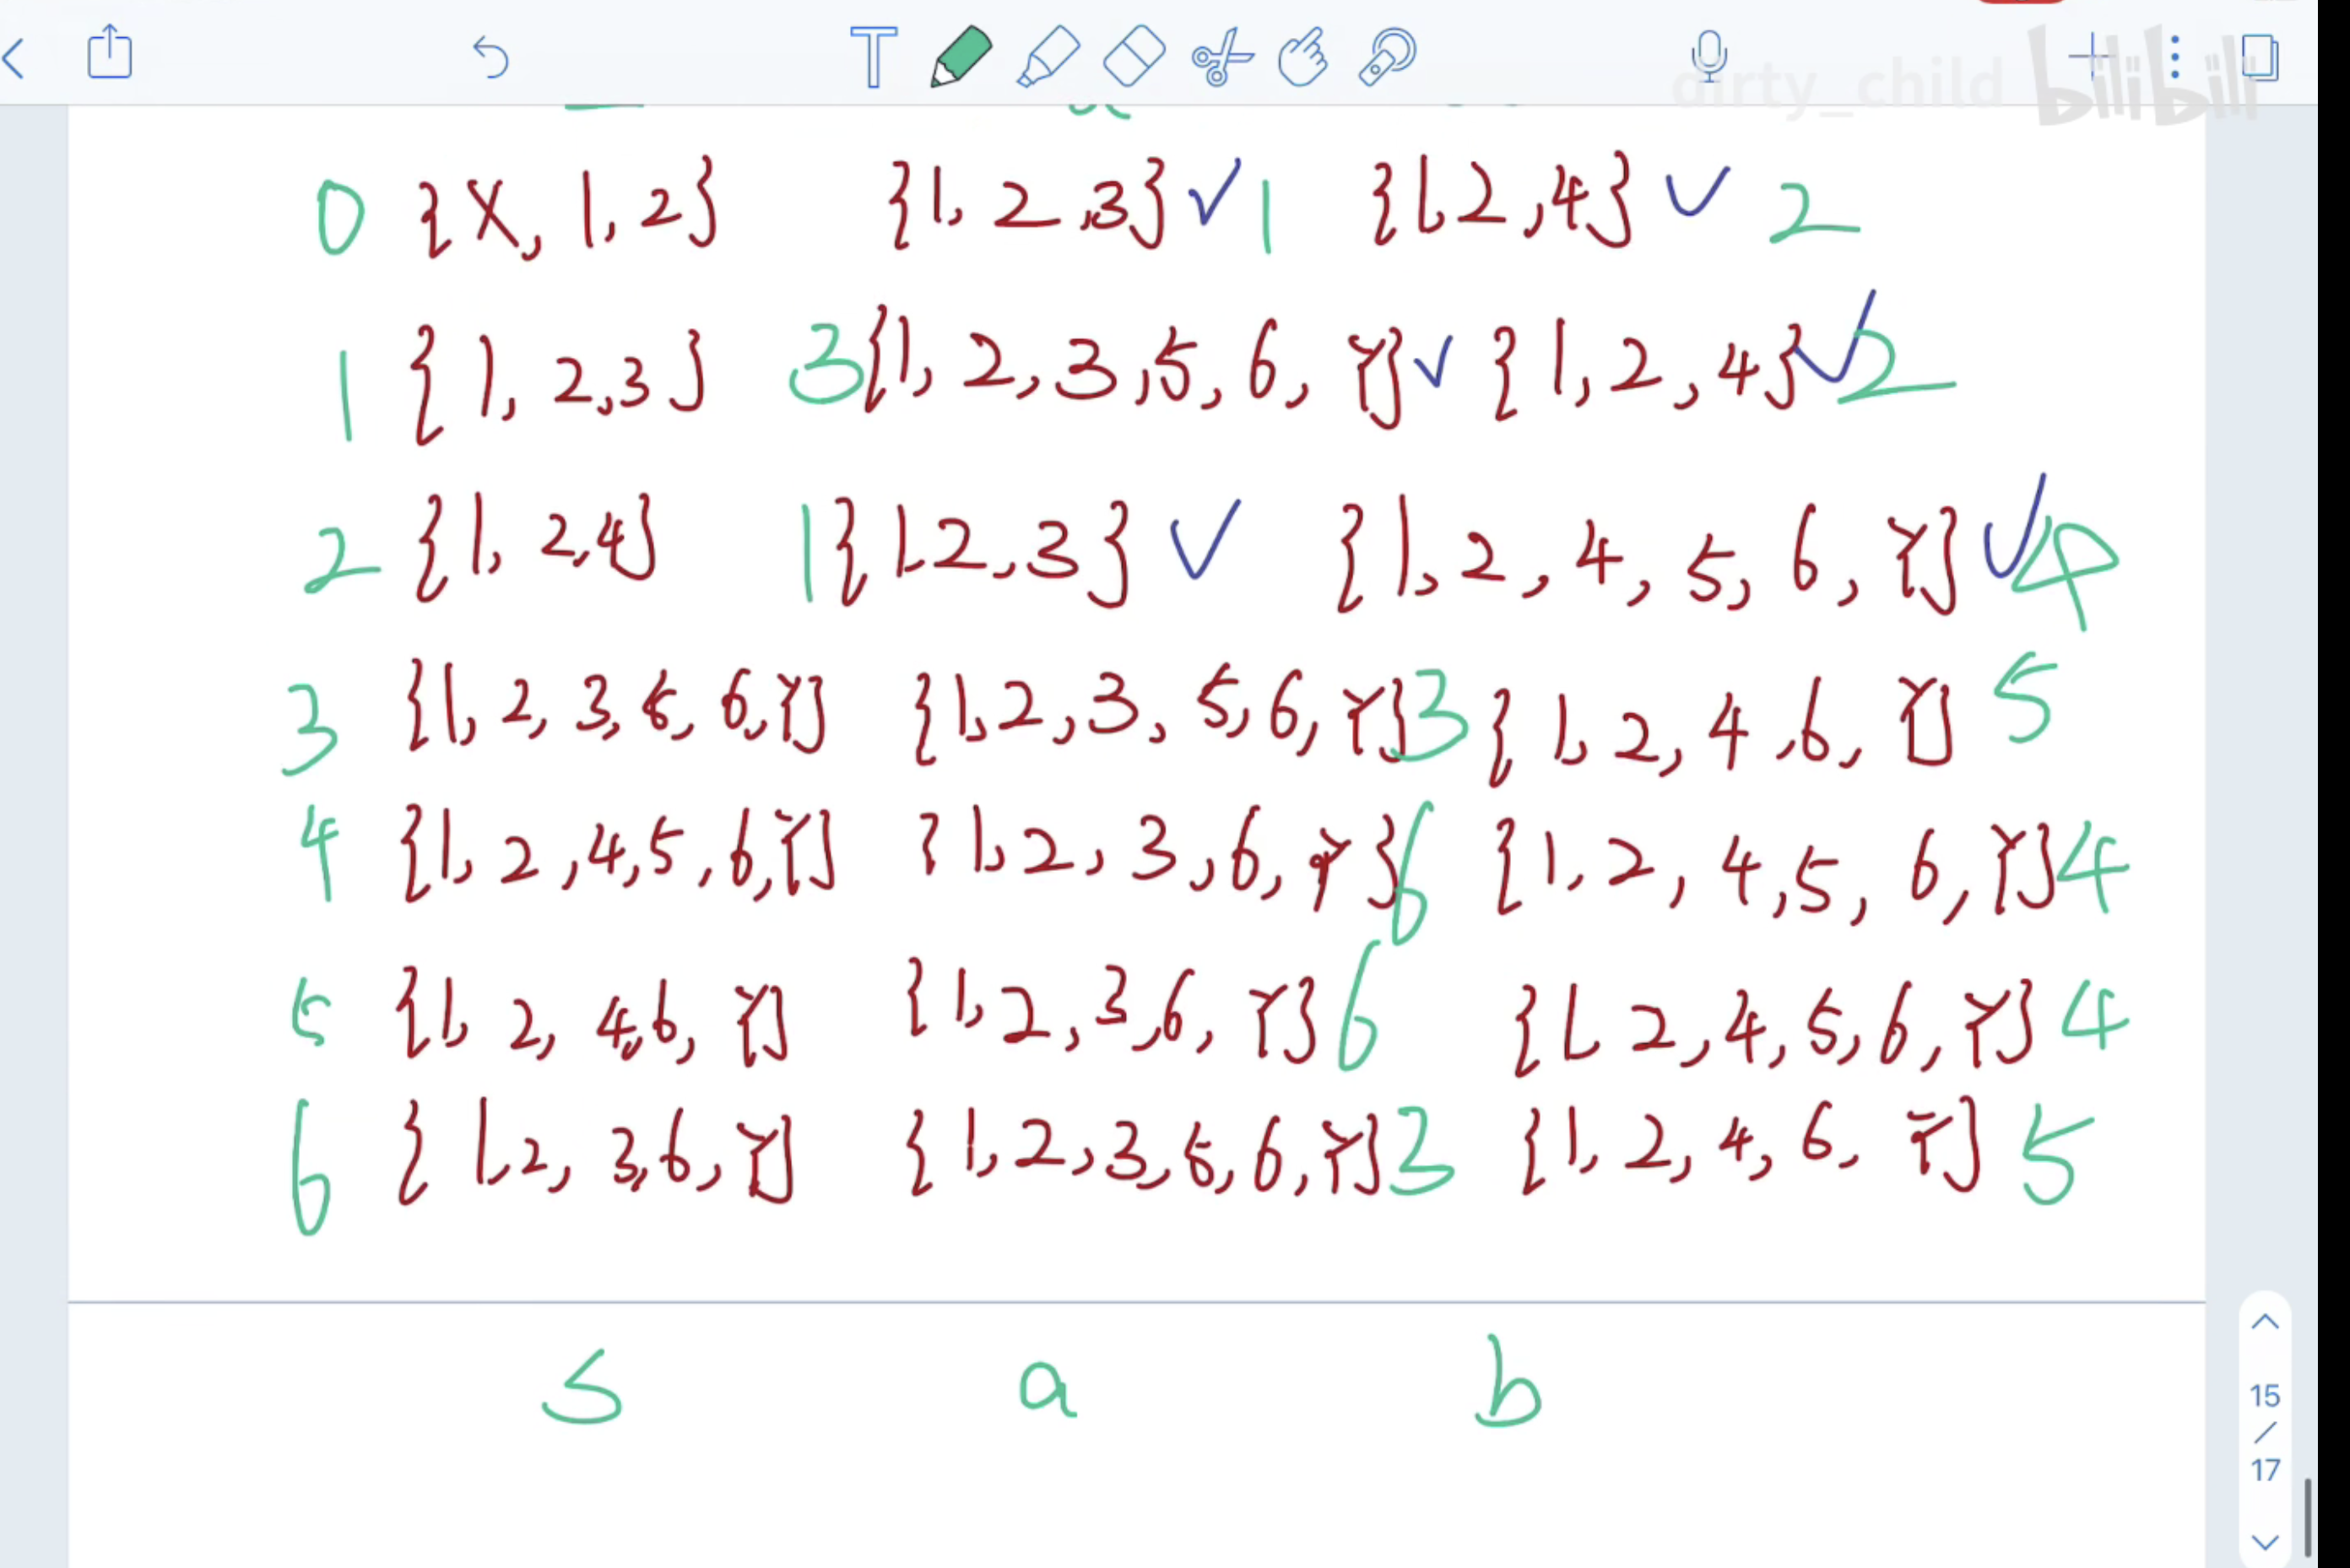 T
dirty_child bilibili
0 {X, 1, 2} {1, 2, 3} ✓ 1 {1, 2, 4} ✓ 2
1 {1, 2, 3} 3 {1, 2, 3, 5, 6, Y} ✓ {1, 2, 4} ✓ 2
2 {1, 2, 4} 1 {1, 2, 3} ✓ {1, 2, 4, 5, 6, Y} ✓ 4
3 {1, 2, 3, 5, 6, Y} {1, 2, 3, 5, 6, Y} 3 {1, 2, 4, 6, Y} 5
4 {1, 2, 4, 5, 6, Y} {1, 2, 3, 6, Y} 6 {1, 2, 4, 5, 6, Y} 4
5 {1, 2, 4, 6, Y} {1, 2, 3, 6, Y} 6 {1, 2, 4, 5, 6, Y} 4
6 {1, 2, 3, 6, Y} {1, 2, 3, 5, 6, Y} 3 {1, 2, 4, 6, Y} 5
S a b
15
/
17